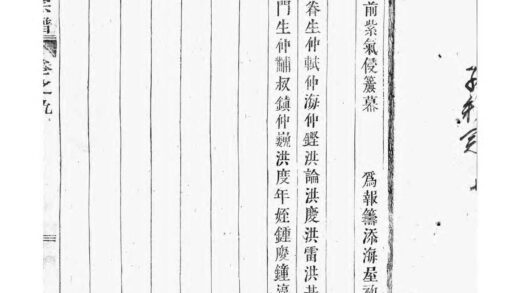 前紫氣侵簾幕　爲報籌添海屋
眷生仲軾仲海仲鏗洪論洪慶洪雷洪
門生仲黼叔鎮仲巍洪度年姪鍾慶鐘
宗譜 卷之九